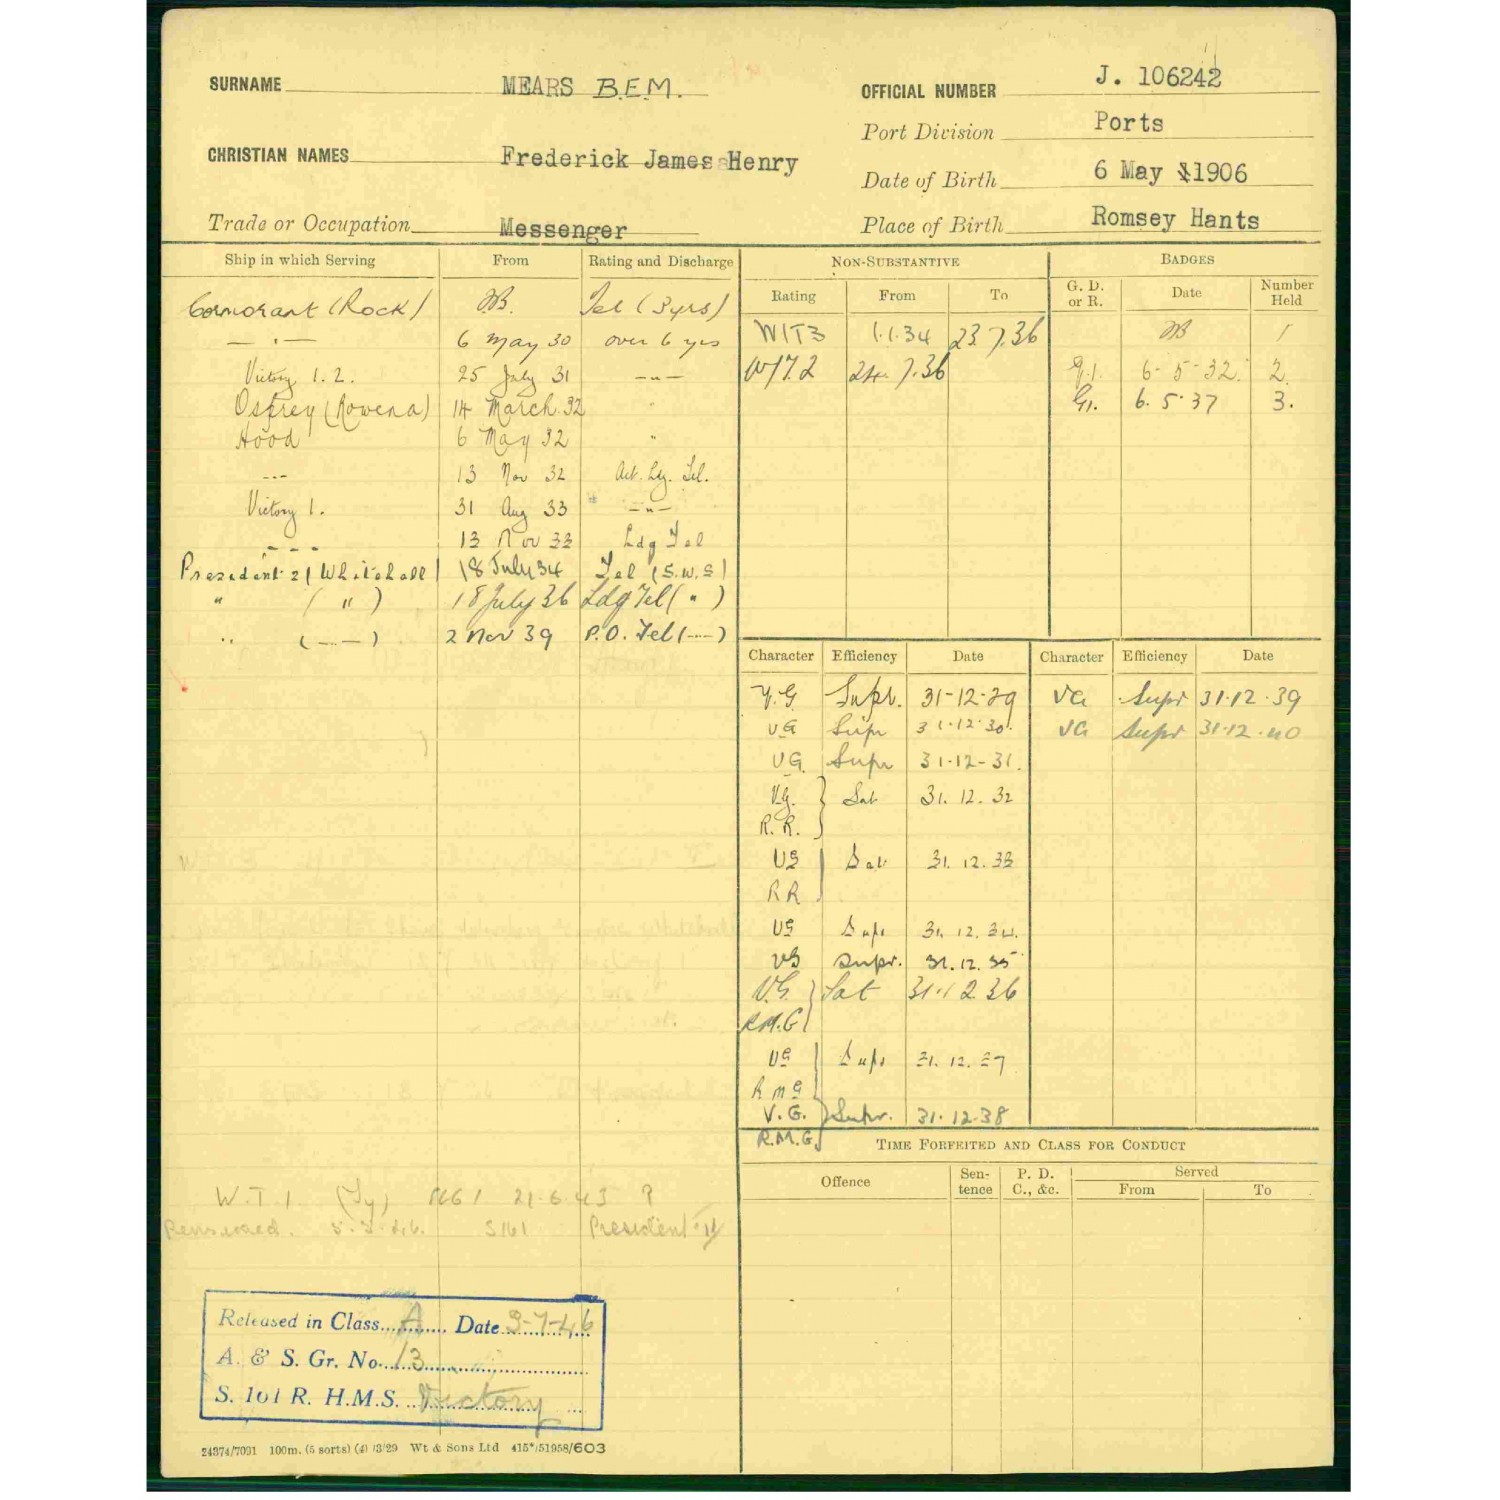 SURNAME MEARS B.E.M.
OFFICIAL NUMBER J. 106242
Port Division Ports
CHRISTIAN NAMES Frederick James Henry
Date of Birth 6 May 1906
Trade or Occupation Messenger
Place of Birth Romsey Hants
Ship in which Serving From Rating and Discharge
Cormorant (Rock) Tel (3yrs)
— . — 6 May 30 over 6 yrs
Victory 1. 2. 25 July 31 —"—
Osprey (Rowena) 14 March 32 "
Hood 6 May 32 "
--- 13 Nov 32 Act. Ldg. Tel.
Victory 1. 31 Aug 33 —"—
--- 13 Nov 33 Ldg Tel
President 2 (Whitehall) 18 July 34 Tel (S.W.S)
" ( " ) 18 July 36 Ldg Tel ( " )
" (—..—) 2 Nov 39 P.O. Tel (—..—)
W.T.1 (Ty) 21.6.43
Pensioned. President
Released in Class A Date 3-7-46
A. & S. Gr. No. 13
S. 161 R. H.M.S. Victory
24374/7091 100m. (5 sorts) (4) /3/29 Wt & Sons Ltd 415*/51958/603
NON-SUBSTANTIVE
Rating From To
WIT3 1.1.34 23 7.36
W/T.2 24. 7.36
BADGES
G. D. or R. Date Number Held
1
G.1. 6-5-32. 2.
G1. 6.5.37 3.
Character Efficiency Date Character Efficiency Date
V.G. Supr. 31-12-29 VG Supr 31.12.39
VG Supr 31.12.30. VG Supr 31.12.40
VG. Supr 31-12-31.
V.G. Sat 31.12.32
R.R.
VG Sat 31.12.33
RR
VG Supr 31.12.34.
VG Supr. 31.12.35
V.G. Sat 31.12.36
R.M.G
VG Supr 31.12.37
R M G
V.G. Supr. 31.12.38
R.M.G
TIME FORFEITED AND CLASS FOR CONDUCT
Offence Sentence P. D. C., &c. Served
From To